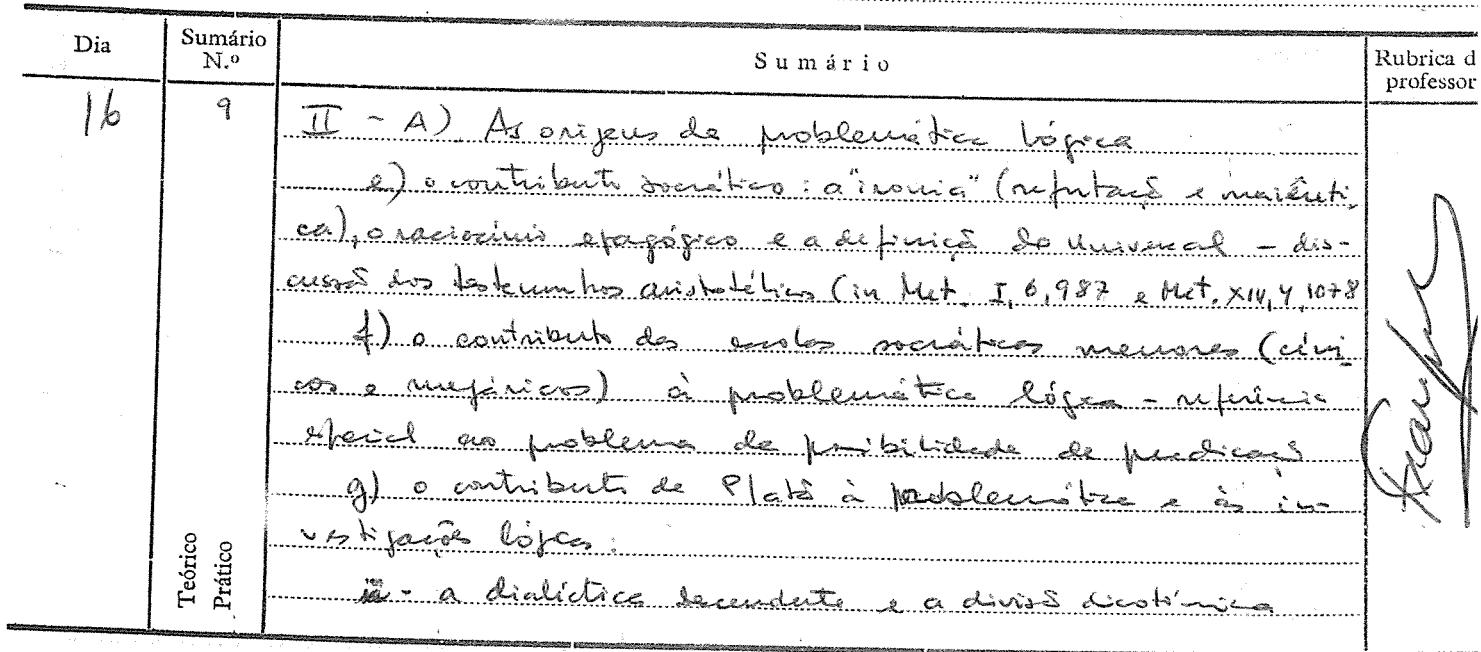 Dia Sumário N.º Sumário Rubrica d professor
16 9 II - A) As origens da problemática lógica
e) o contributo socrático: a "ironia" (refutação e maiêuti-
ca), o raciocínio epagógico e a definição do universal - dis-
cussão dos testemunhos aristotélicos (in Met. I, 6, 987 e Met. XIV, 4, 1078
f) o contributo das escolas socráticas menores (cíni-
cos e megáricos) à problemática lógica - referência
especial ao problema da possibilidade da predicação
g) o contributo de Platão à problemática e às in-
vestigações lógicas:
- a dialéctica descendente e a divisão dicotómica
Teórico
Prático